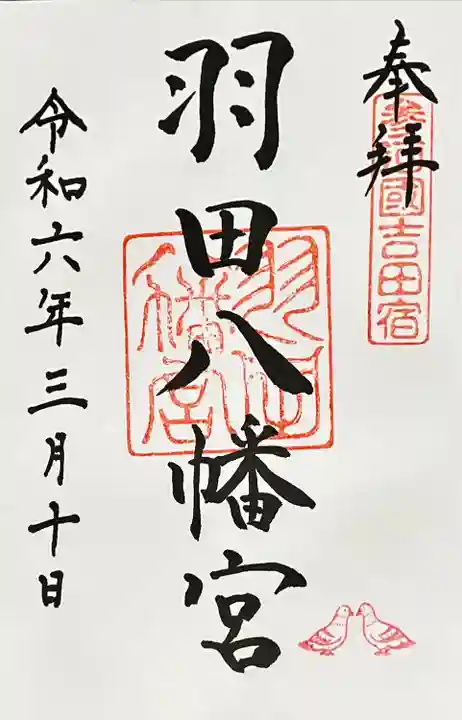 奉拝
参河國吉田宿
羽田八幡宮
羽田八幡宮
令和六年三月十日